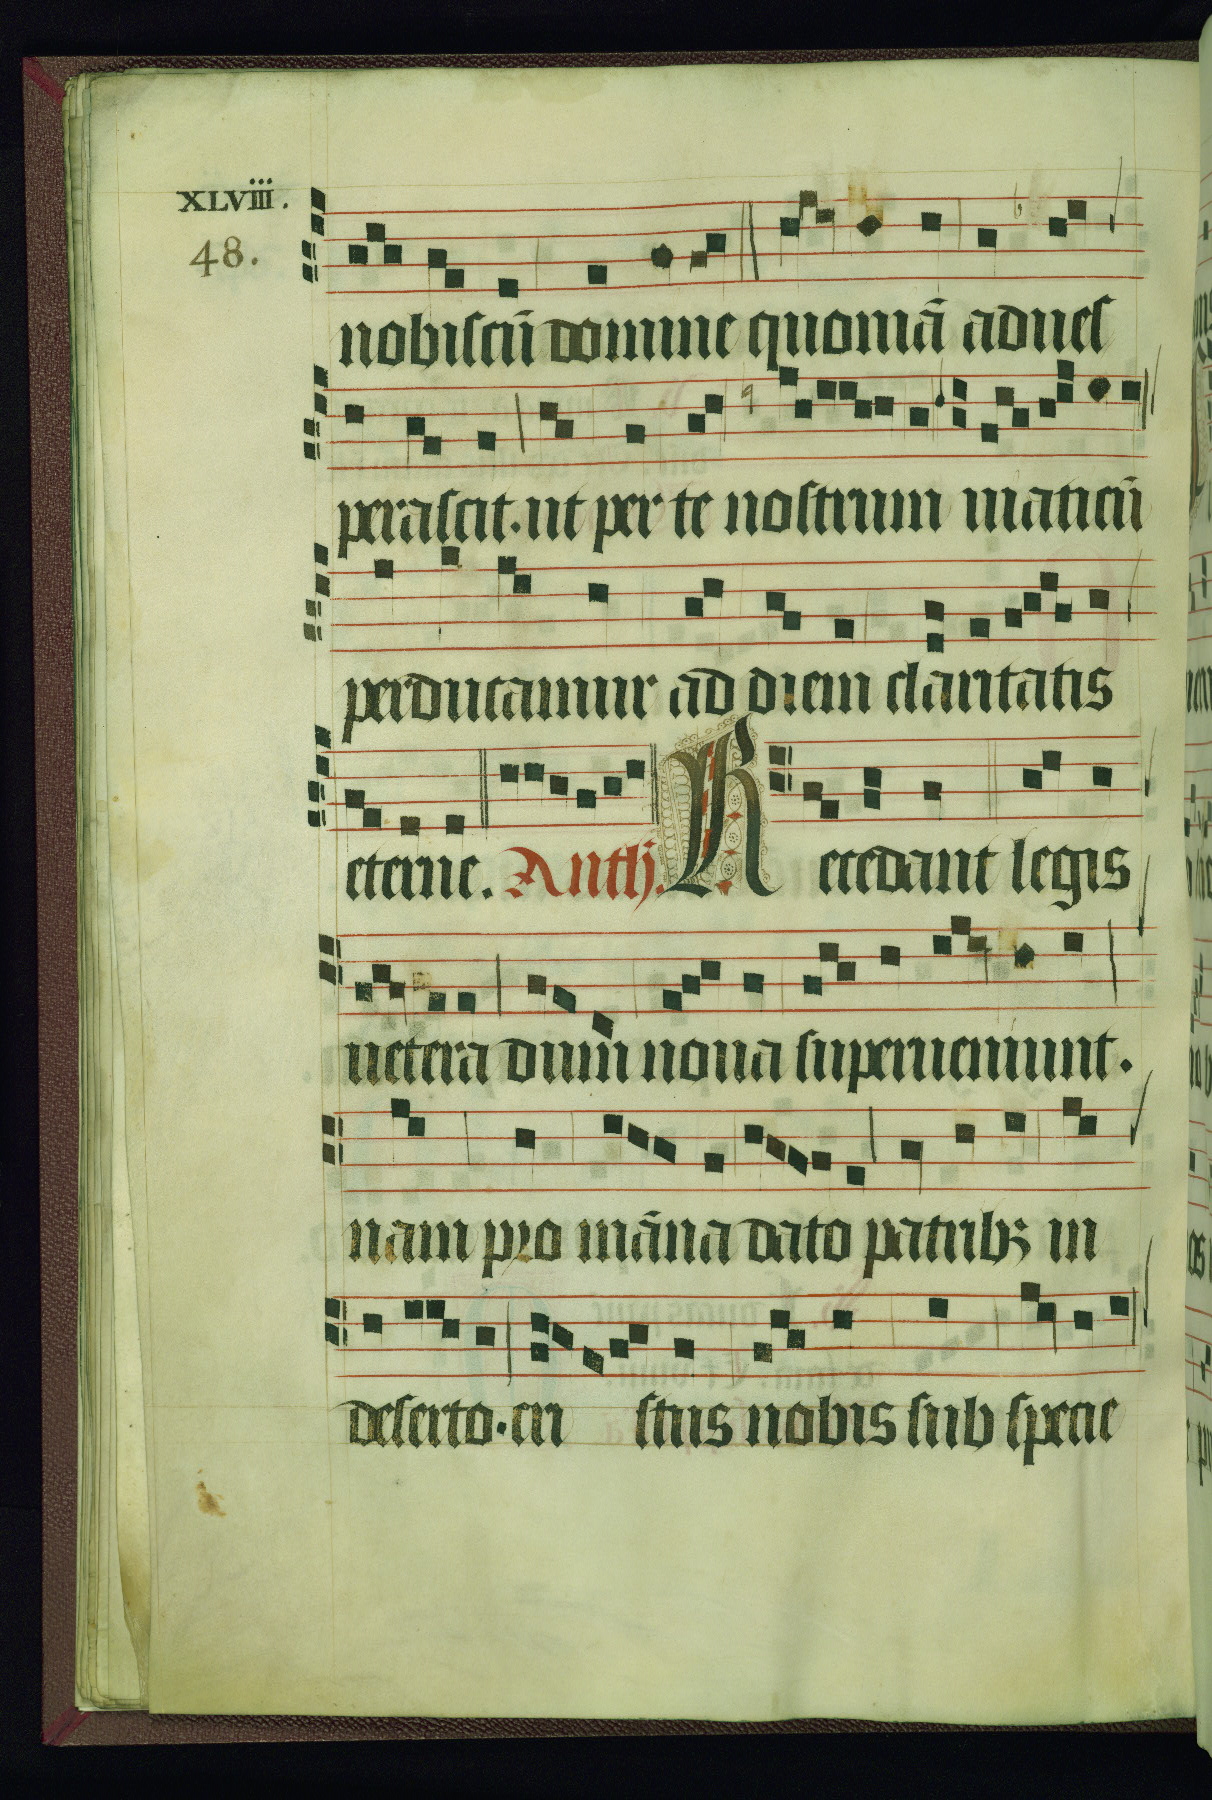 XLVIII.
48.
nobiscū domine quoniā adues
perascit. ut per te nostrum viaticū
perducamur ad diem claritatis
eterne. Anth. Recedant legis
uetera dum noua superueniunt.
nam pro māna dato patribꝫ in
deserto. cri stus nobis sub specie